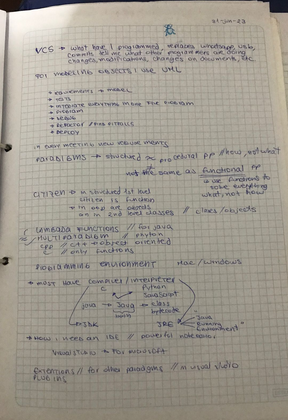 21-jun-23
VCS → what have I programmed, replaces whatsapp, usb,
commits tell me what other programmers are doing
changes, modifications, changes on documents, etc.
For modeling objects I use UML
• requirements → model
• tests
• integrate questions in one for problem
• program
• debug
• refactor //
• deploy
in every meeting new requirements
Paradigms → structured → procedural pp // how, not what
not the same as functional pp
use functions to
solve everything
what, not how
citizen → in structured 1st level
citizen is function
→ in oop are objects
are in 2nd level classes // class/objects
lambada functions // for java
multiparadigm // python
cpp // c++ → object oriented
c // only functions
programming environment mac/windows
• must have compiler/interpreter
C Python
JavaScript
java → Java → class
bytecode
→ JDK JRE → Java
Running
Environment
• now, I need an IDE // powerful notebook
Visual Studio → for microsoft
extentions // for other paradigms // in visual studio
plug ins